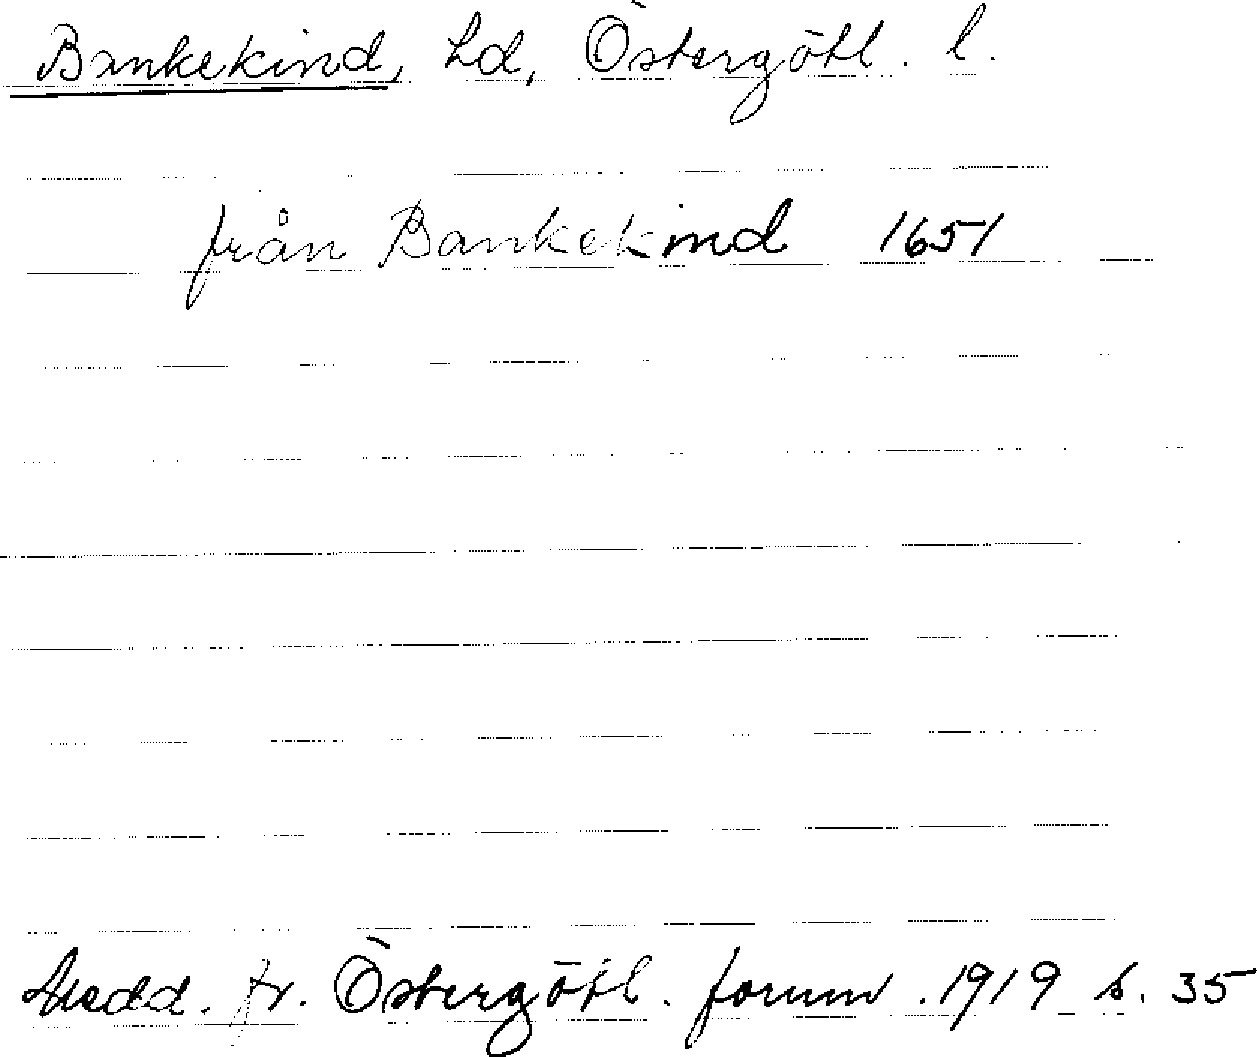 Bankekind, hd, Östergötl. l.
från Bankekind 1651
Medd. fr. Östergötl. fornm. 1919 s. 35